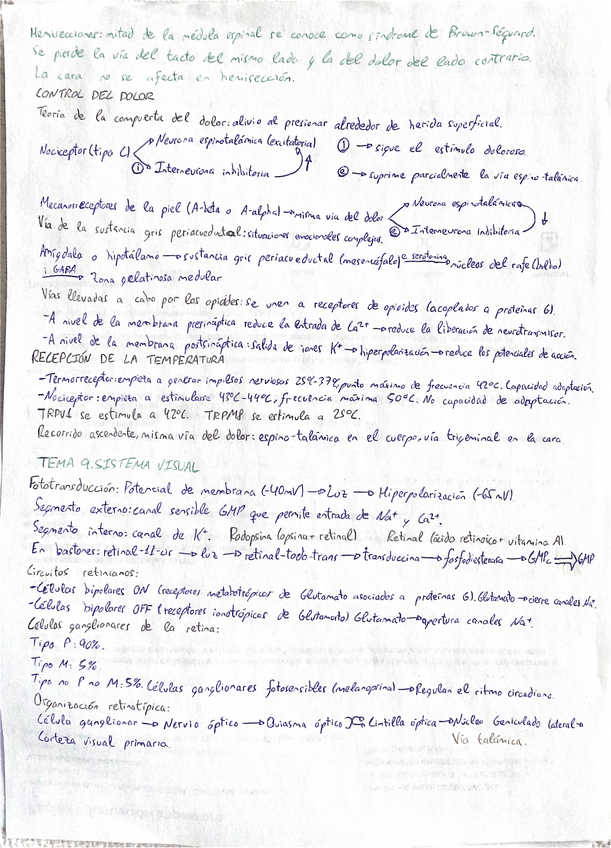 Hemisecciones: mitad de la médula espinal se conoce como síndrome de Brown-Séquard.
Se pierde la vía del tacto del mismo lado y la del dolor del lado contrario.
La cara no se afecta en hemisección.
CONTROL DEL DOLOR
Teoría de la compuerta del dolor: alivio al presionar alrededor de herida superficial.
Nociceptor (tipo C)
Neurona espinotalámica (excitatoria)
① Interneurona inhibitoria
① → sigue el estímulo doloroso.
② → suprime parcialmente la vía espino-talámica.
Mecanorreceptores de la piel (A-beta o A-alpha) → misma vía del dolor
Neurona espinotalámica
② Interneurona inhibitoria
Vía de la sustancia gris periacueductal: situaciones emocionales complejas.
Amígdala o hipotálamo → sustancia gris periacueductal (mesencéfalo) e serotonina → núcleos del rafe (bulbo)
i GABA → Zona gelatinosa medular
Vías llevadas a cabo por los opioides: se unen a receptores de opioides (acoplados a proteínas G).
-A nivel de la membrana presináptica reduce la entrada de Ca²⁺ → reduce la liberación de neurotransmisor.
-A nivel de la membrana postsináptica: salida de iones K⁺ → hiperpolarización → reduce los potenciales de acción.
RECEPCIÓN DE LA TEMPERATURA
-Termorreceptor: empieza a generar impulsos nerviosos 25º-37º, punto máximo de frecuencia 42ºC. Capacidad adaptación.
-Nociceptor: empieza a estimularse 43ºC-44ºC, frecuencia máxima 50ºC. No capacidad de adaptación.
TRPV1 se estimula a 42ºC. TRPM8 se estimula a 25ºC.
Recorrido ascendente, misma vía del dolor: espino-talámica en el cuerpo, vía trigeminal en la cara.
TEMA 9. SISTEMA VISUAL
Fototransducción: Potencial de membrana (-40mV) → Luz → Hiperpolarización (-65mV).
Segmento externo: canal sensible GMP que permite entrada de Na⁺ y Ca²⁺.
Segmento interno: canal de K⁺. Rodopsina (opsina + retinal) Retinal (ácido retinoico + vitamina A)
En bastones: retinal-11-cis → luz → retinal-todo trans → transduccina → fosfodiesterasa → GMPc ⇒ GMP
Circuitos retinianos:
-Células bipolares ON (receptores metabotrópicos de Glutamato asociados a proteínas G). Glutamato → cierre canales Na⁺.
-Células bipolares OFF (receptores ionotrópicos de Glutamato) Glutamato → apertura canales Na⁺.
Células ganglionares de la retina:
Tipo P: 90%.
Tipo M: 5%.
Tipo no P no M: 5%. Células ganglionares fotosensibles (melanopsina) → Regulan el ritmo circadiano.
Organización retinotípica:
Célula ganglionar → Nervio óptico → Quiasma óptico Cintilla óptica → Núcleo Geniculado lateral →
Corteza visual primaria.
Vía talámica.